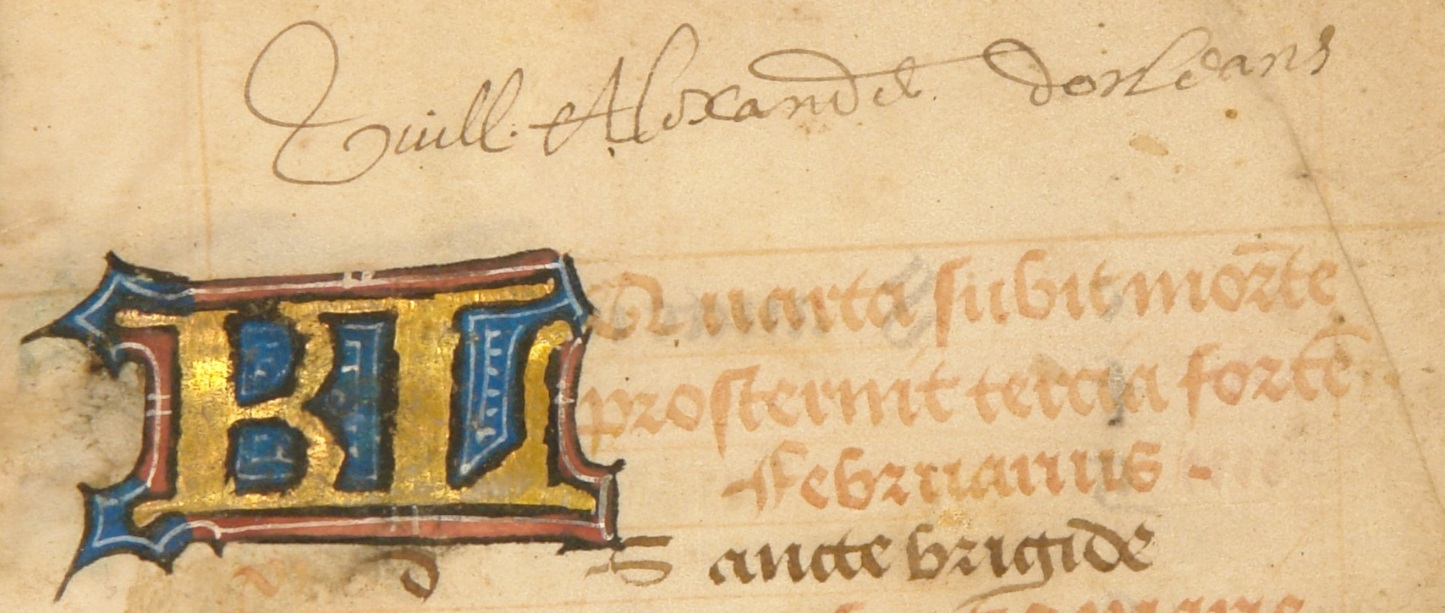 Guill. Alexandre dorleans
KL Quarta subit mor̄te
prosternit tercia fortē
Februarius
d Sancte brigide